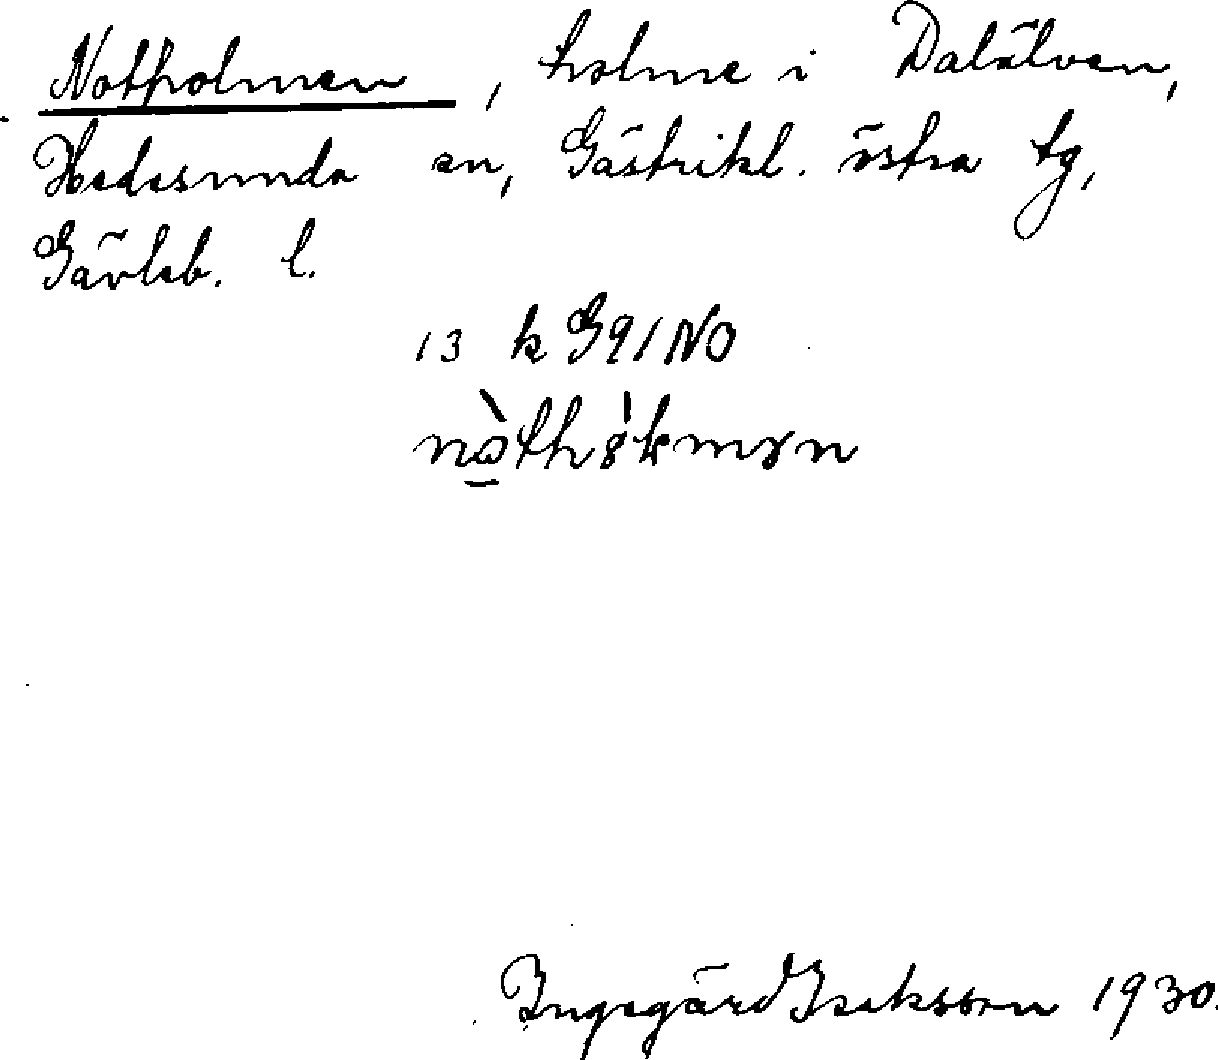 Notholmen, holme i Dalälven,
Hedesunda sn, Gästrikl. östra tg,
Gävleb. l.
13 k G91NO
Ingegärd Isaksson 1930.